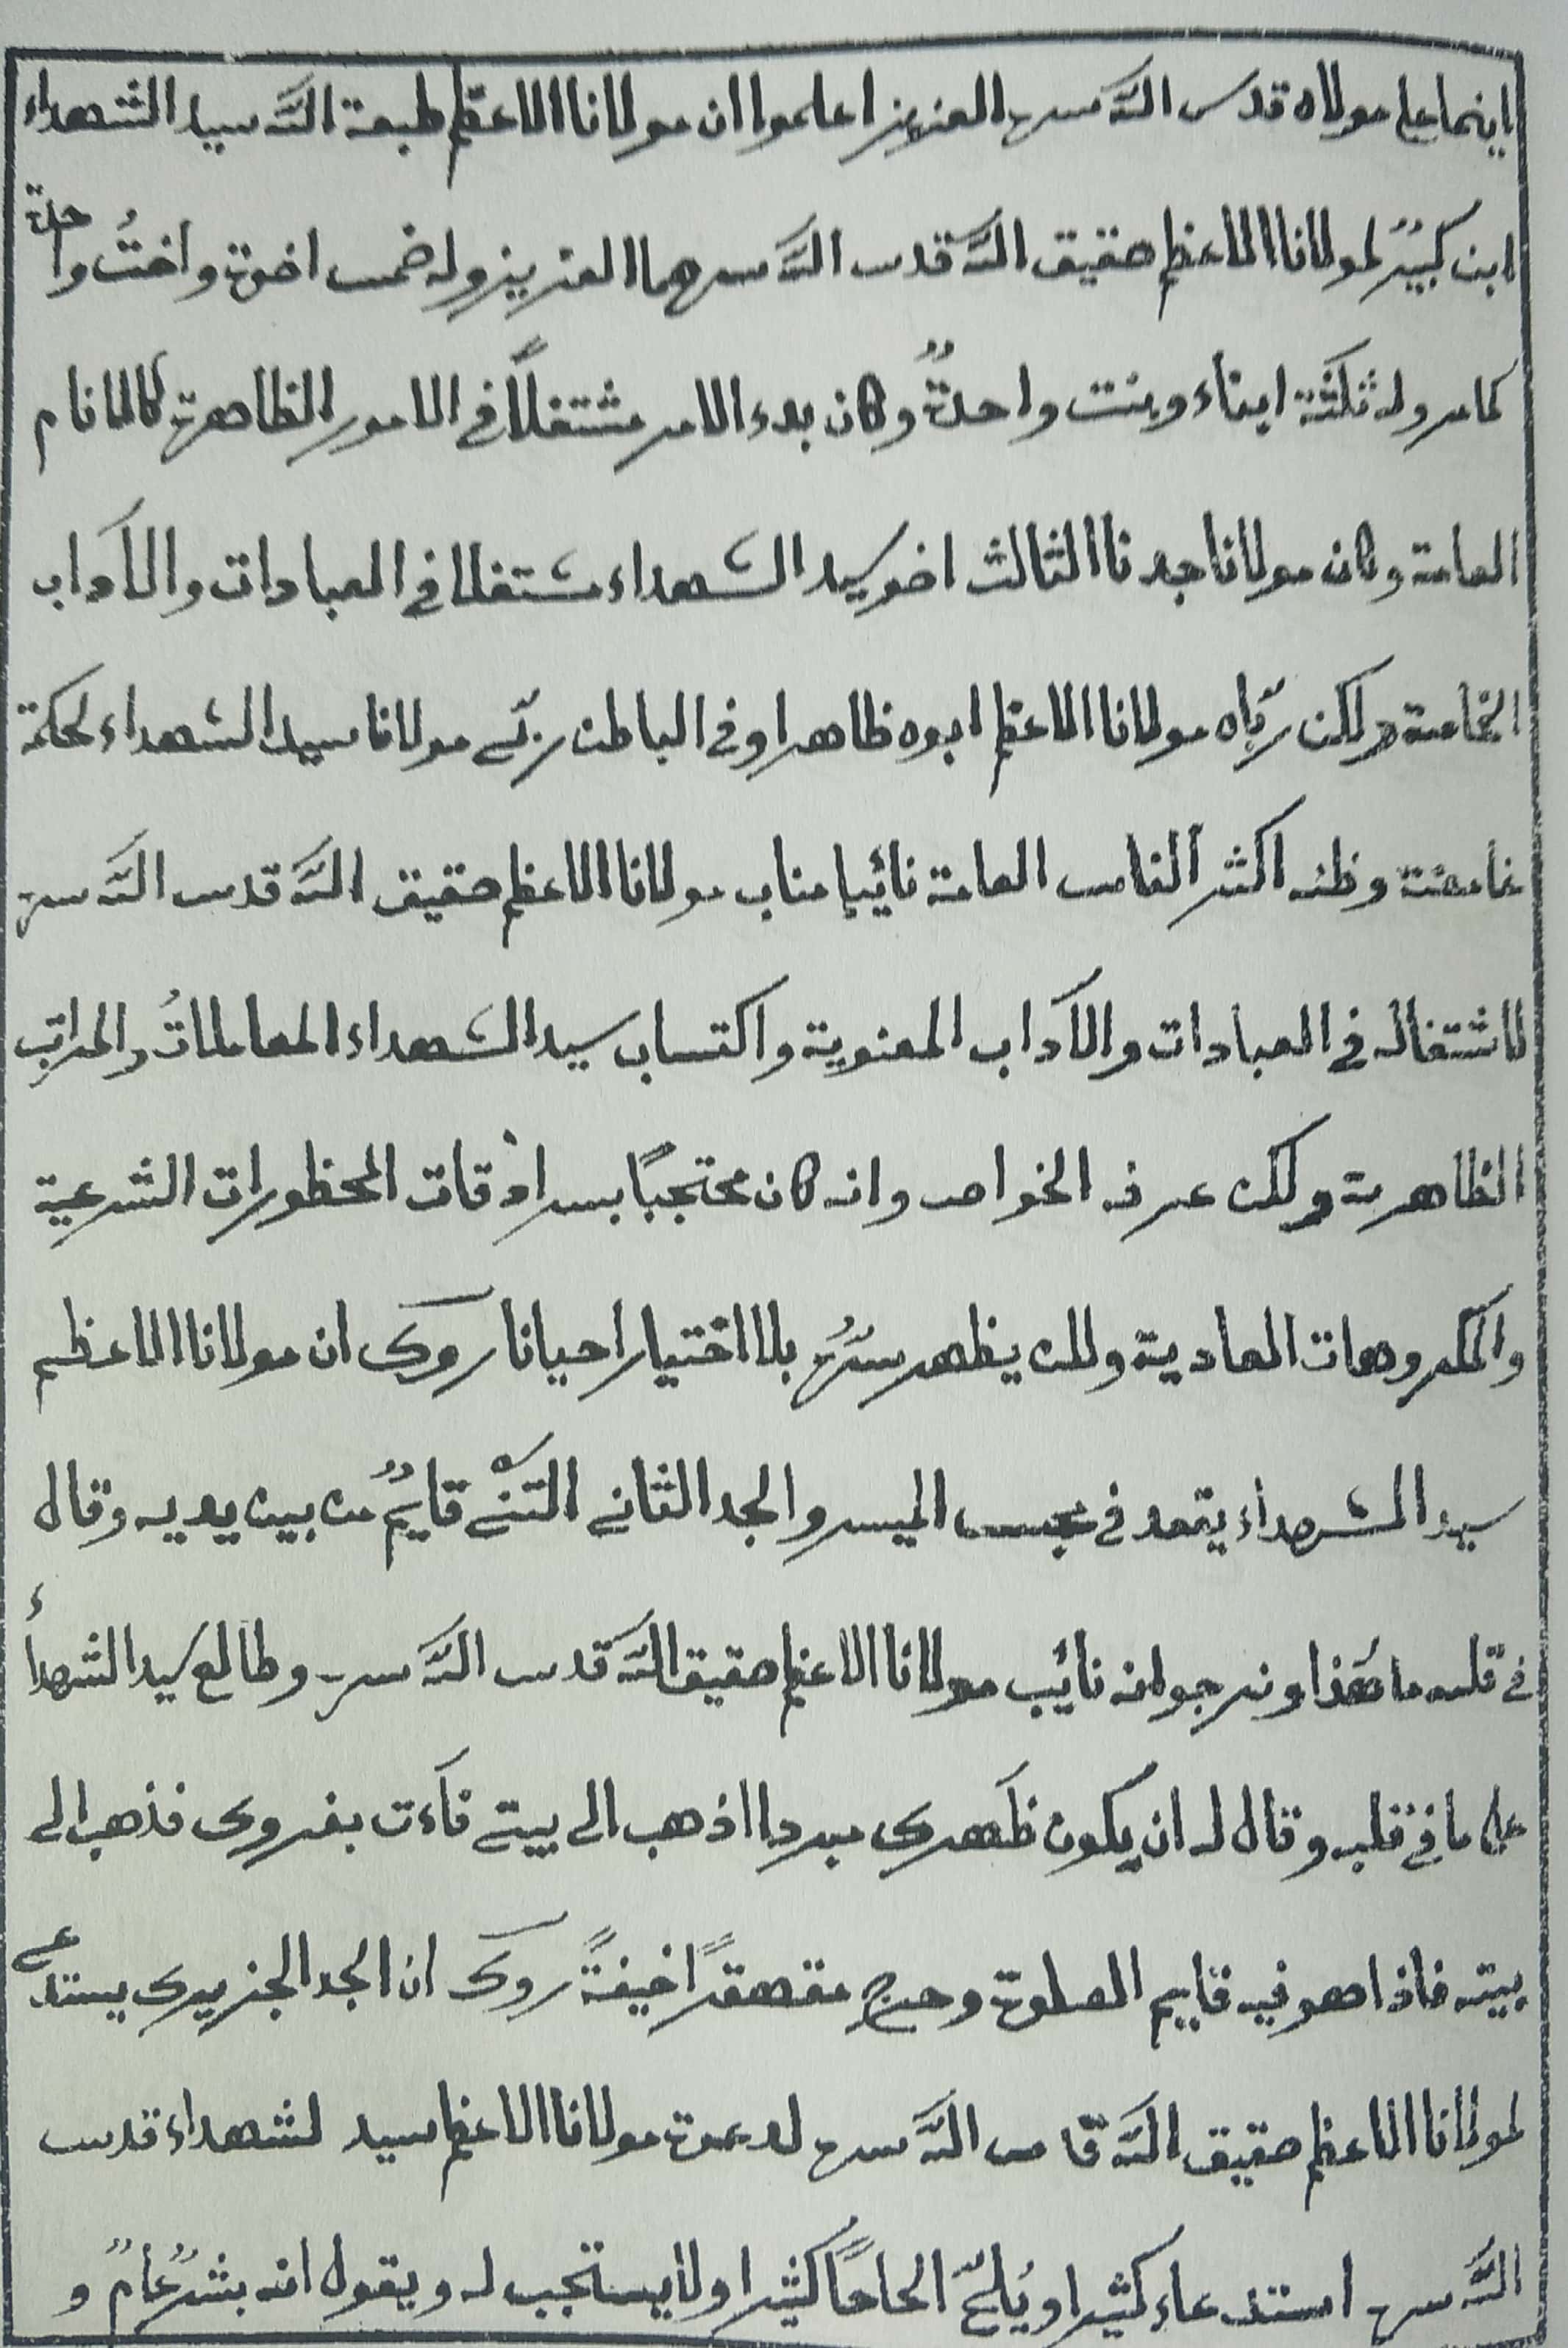 اينما على مولاه قدس الله سره العزيز اعلموا ان مولانا الاعظم طبعة الله سيد الشهداء
ابن كبيرٌ لمولانا الاعظم حقيق الله قدس الله سرهما العزيز وله خمس اخوة واختٌ واحدة
كامر وله ثلثة ابناء وبنت واحدةٌ وكان بدء الامر مشتغلاً في الامور الظاهرة كالانام
العامة وكان مولانا جدنا الثالث اخو سيد الشهداء مشتغلا في العبادات والآداب
الخاصة ولكن ربّاه مولانا الاعظم ابوه ظاهرا وفي الباطن ربّى مولانا سيد الشهداء لحكمة
غامضة وظنه اكثر الناس العامة نائبا مناب مولانا الاعظم حقيق الله قدس الله سره
لاشتغاله في العبادات والآداب المعنوية واكتساب سيد الشهداء المعاملاتُ والمراتبِ
الظاهرية ولكن عرفه الخواص وانه كان محتجبًا بسرادقات المحظورات الشرعية
والمكروهات العادية ولكن يظهر سرُّه بلا اختيار احيانا روى ان مولانا الاعظم
سيد الشهداء يقعد في مجلس الميسر والجد الثاني التنّى قايمٌ من بين يديه وقال
في قلبه ما هَذا ونرجو انه نائب مولانا الاعظم حقيق الله قدس الله سره وطالع سيد الشهداء
على ما في قلبه وقال له ان يكون ظهرى مبردا اذهب الى بيتى فاءت بفروى فذهب الى
بيته فاذا هو فيه قايم الصلوة وخرج مقهقرًا خيفةً روى ان الجد الجزيرى يستدعى
لمولانا الاعظم حقيق الله قدس الله سره لدعوة مولانا الاعظم سيد لشهداء قدس
الله سره استدعاء كثيرا ويُلحّ الحاحًا كثيرا ولا يستجب له ويقول انه بشرٌ عامٌ و